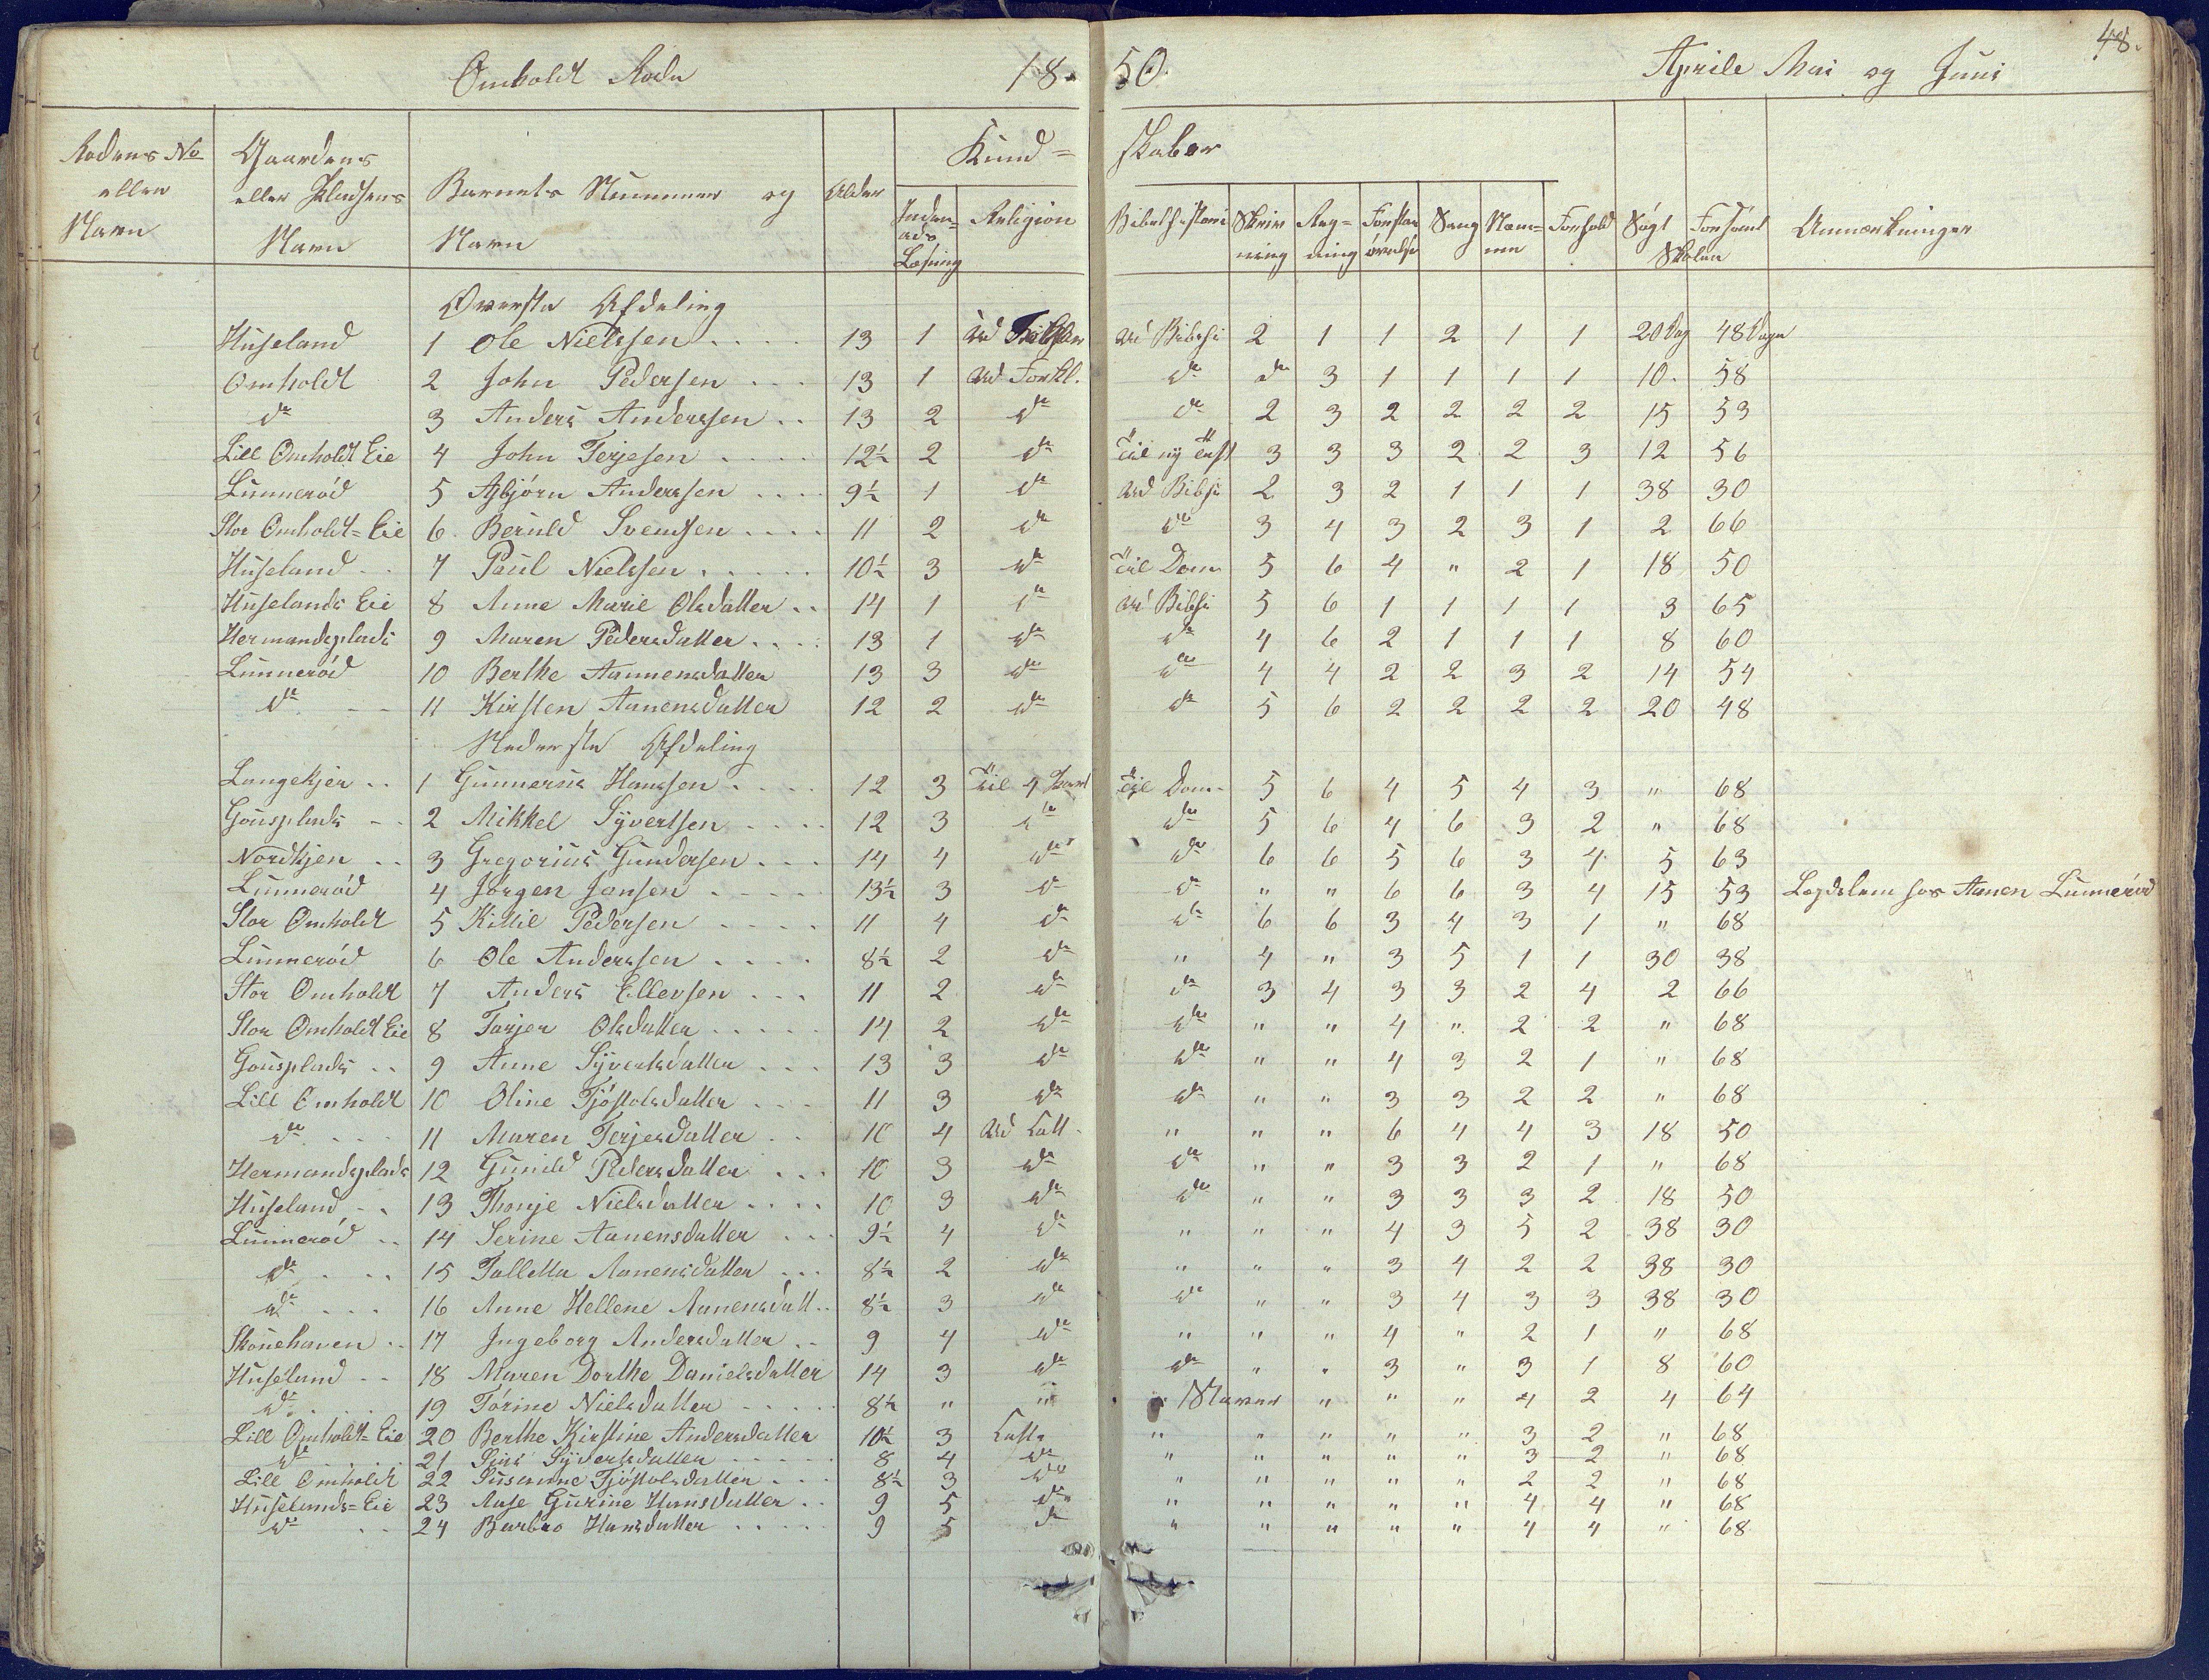 48.
Omholdt Rode 18 50. Aprile Mai og Juni
Rodens No eller Navn | Gaardens eller Pladsens Navn | Barnets Nummer og Navn | Alder | Kund= skaber | Inden= ads Læsning | Religion | Bibelhistori | Skriv ning | Reg= ning | Forstan øvelse | Sang | Nem= me | Forhold | Søgt Skolen | Forsømt | Anmærkninger
Øverste Afdeling
Huseland 1 Ole Nielssen 13 1 ud ud Bibshi 2 1 1 2 1 1 20 Dag 48 Dage
Omholdt 2 John Pedersen 13 1 ud Forkl. do do 3 1 1 1 1 10 58
do 3 Anders Anderssen 13 2 do do 2 3 2 2 2 2 15 53
Lill Omholdt Eie 4 John Terjesen 12½ 2 do Til ny Test 3 3 3 2 2 3 12 56
Lunnerød 5 Asbjørn Anderssen 9½ 1 do ud Bibshi 2 3 2 1 1 1 38 30
Stor Omholdt=Eie 6 Beruld Svendsen 11 2 do do 3 4 3 2 3 1 2 66
Huseland 7 Paul Nielssen 10½ 3 do Til Dom 5 6 4 " 2 1 18 50
Huselands Eie 8 Anne Marie Olsdatter 14 1 do ud Bibshi 5 6 1 1 1 1 3 65
Hermandsplads 9 Maren Pedersdatter 13 1 do do 4 6 2 1 1 1 8 60
Lunnerød 10 Berthe Aannensdatter 13 3 do do 4 4 2 2 3 2 14 54
do 11 Kirsten Aanensdatter 12 2 do do 5 6 2 2 2 2 20 48
Nederste Afdeling
Langekjer 1 Gunnerius Hanssen 12 3 Til 4 Part Til Dom 5 6 4 5 4 3 " 68
Gousplads 2 Mikkel Syvertsen 12 3 do do 5 6 4 6 3 2 " 68
Nordkjen 3 Gregorius Gundersen 14 4 do do 6 6 5 6 3 4 5 63
Lunnerød 4 Jørgen Jansen 13½ 3 do do " " 6 6 3 4 15 53 Legdslem hos Aanen Lunnerød
Stor Omholdt 5 Kittil Pedersen 11 4 do do 6 6 3 4 3 1 " 68
Lunnerød 6 Ole Anderssen 8½ 2 do " 4 " 3 5 1 1 30 38
Stor Omholdt 7 Anders Ellevsen 11 2 do do 3 4 3 3 2 4 2 66
Stor Omholdt Eie 8 Tarjer Olsdatter 14 2 do do " " 4 " 2 2 " 68
Gousplads 9 Anne Syvertsdatter 13 3 do do " " 4 3 2 1 " 68
Lill Omholdt 10 Oline Tjøstolsdatter 11 3 do do " " 3 3 2 2 " 68
do 11 Maren Terjesdatter 10 4 ud Catt " " " 6 4 4 3 18 50
Hermandsplads 12 Gunild Pedersdatter 10 3 do do " " 3 3 2 1 " 68
Huseland 13 Thonje Nielsdatter 10 3 do do " " 3 3 3 2 18 50
Lunnerød 14 Serine Aanensdatter 9½ 4 do " " " 4 3 5 2 38 30
do 15 Talletta Aanensdatter 8½ 2 do " " " 3 4 2 2 38 30
do 16 Anne Hellene Aanensdatt 8½ 3 do do " " 3 4 3 3 38 30
Skonehaven 17 Ingeborg Andersdatter 9 4 do " " " 4 " 2 1 " 68
Huseland 18 Maren Dorthe Danielsdatter 14 3 do do " " 3 " 3 1 8 60
do 19 Torine Nielsdatter 8½ " " " Staver " " " 4 2 4 64
Lill Omholdt=Eie 20 Berthe Kirstine Andersdatter 10½ 3 Catt " " " " " 3 2 " 68
do 21 Siri Syvertsdatter 8 4 do " " " " " 3 2 " 68
Lill Omholdt 22 Susanne Tjøstolsdatter 8½ 3 do " " " " " 2 2 " 68
Huselands=Eie 23 Aase Gurine Hansdatter 9 5 do " " " " " 4 4 " 68
do 24 Barbro Hansdatter 9 5 do " " " " " 4 4 " 68